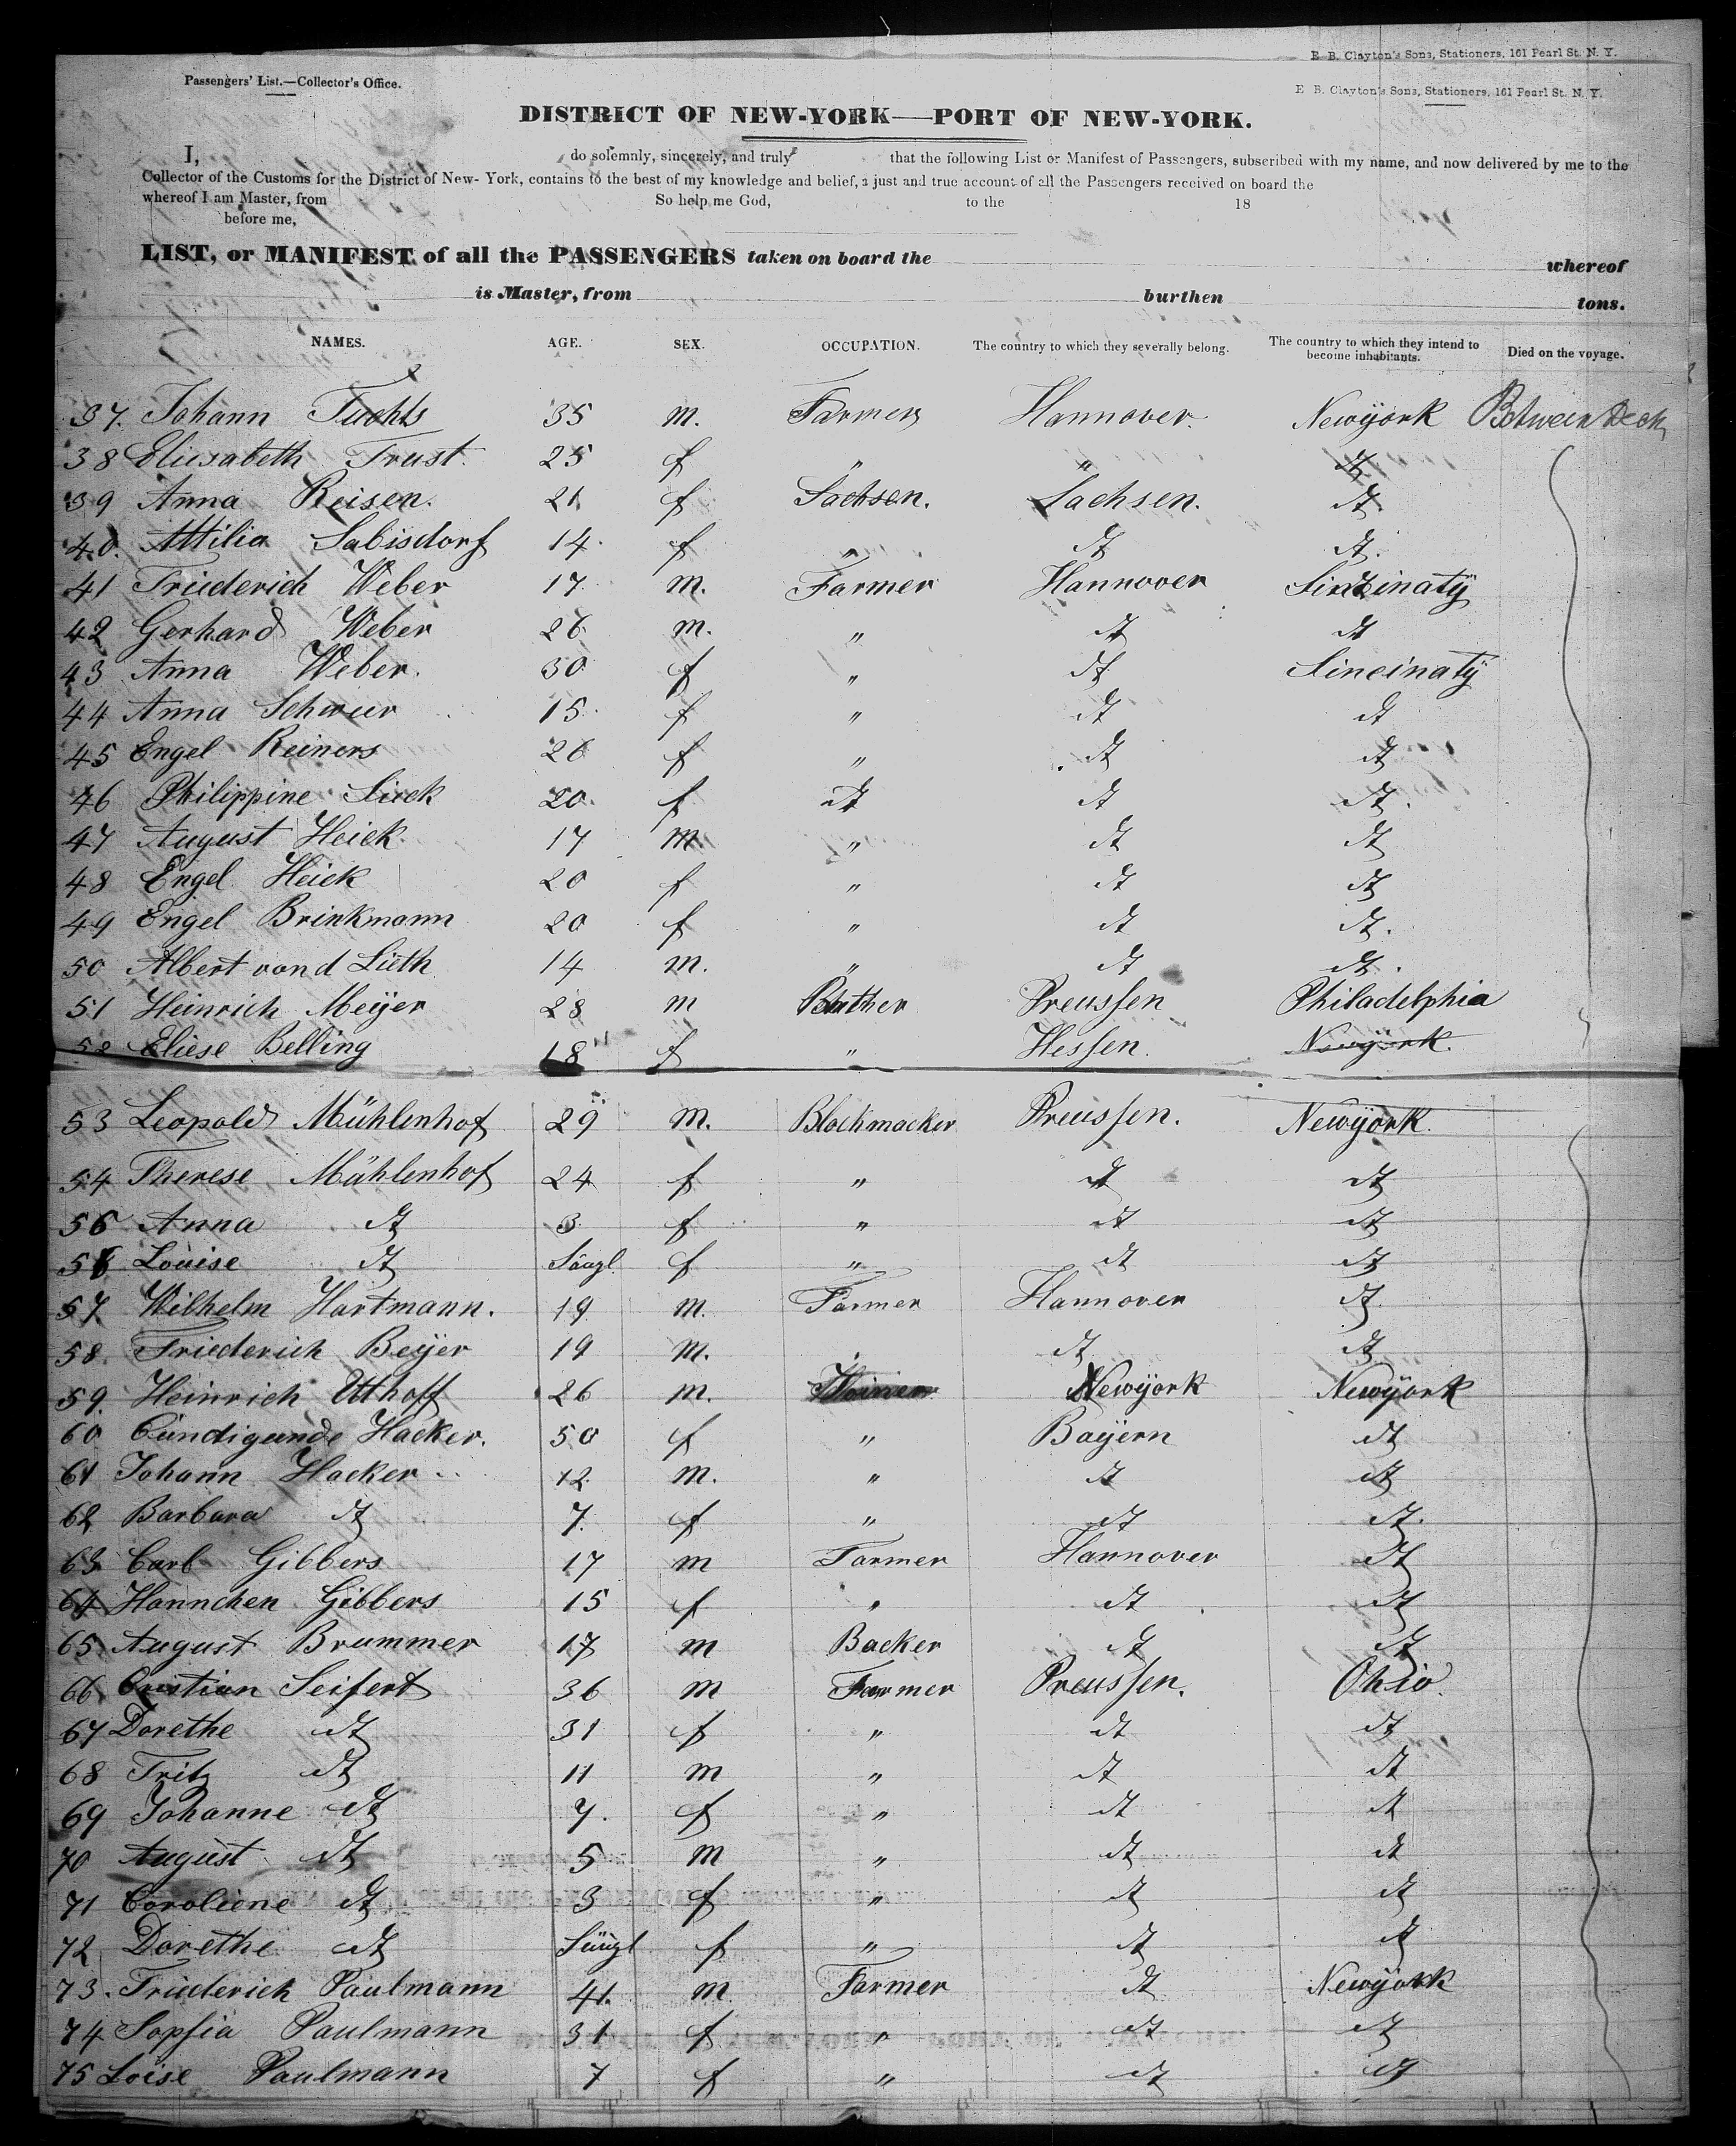 E. B. Clayton's Sons, Stationers, 161 Pearl St. N. Y.
Passengers' List.—Collector's Office.
E. B. Clayton's Sons, Stationers, 161 Pearl St. N. Y.
DISTRICT OF NEW-YORK—PORT OF NEW-YORK.
I, do solemnly, sincerely, and truly that the following List or Manifest of Passengers, subscribed with my name, and now delivered by me to the
Collector of the Customs for the District of New-York, contains to the best of my knowledge and belief, a just and true account of all the Passengers received on board the
whereof I am Master, from So help me God, to the 18
before me,
LIST, or MANIFEST of all the PASSENGERS taken on board the whereof
is Master, from burthen tons.
NAMES. AGE. SEX. OCCUPATION. The country to which they severally belong. The country to which they intend to become inhabitants. Died on the voyage.
37. Johann Fuchts 35 m. Farmer Hannover. Newÿork Between Deck
38 Eliesabeth Trust. 25 f " " dt
39 Anna Reisen. 21 f Sachsen. Sachsen. dt
40. Attilia Sabisdorf 14. f " dt dt.
41 Friederich Weber 17 m. Farmer Hannover Sincinatÿ
42 Gerhard Weber 26 m. " dt dt
43 Anna Weber. 30 f " dt Sincinatÿ
44 Anna Schwur 15. f " dt dt
45 Engel Reiners 26 f " dt dt
46 Philippine Lück 20. f dt dt dt.
47 August Heick 17 m. " dt dt
48 Engel Heick 20 f " dt dt
49 Engel Brinkmann 20 f " dt dt.
50 Albert von d Lieth 14 m. " dt dt.
51 Heinrich Meÿer 28 m Preussen Philadelphia
52 Eliese Belling 18 f " Hessen. Newÿork.
53 Leopold Mühlenhof 29 m. Blockmacker Preussen. Newÿork.
54 Therese Mühlenhof 24 f " dt dt
55 Anna dt 3 f " dt dt
56 Louise dt Säugl f " dt dt
57. Wilhelm Hartmann. 19 m. Farmer Hannover dt.
58. Friederich Beÿer 19 m. " dt dt
59. Heinrich Utthoff 26 m. Newÿork Newÿork
60 Cundigunde Hacker. 50 f " Baÿern dt
61 Johann Hacker 12. m. " dt dt
62 Barbara dt 7. f " dt dt.
63 Carl Gibbers 17 m Farmer Hannover dt
64 Hannchen Gibbers 15 f " dt dt
65 August Brummer 17 m Backer dt dt
66 Cristian Seifert 36 m Farmer Preussen. Ohio.
67 Dorethe dt 31 f " dt dt
68 Fritz dt 11 m " dt dt
69 Johanne dt 7. f " dt dt
70 August dt 5 m " dt dt
71 Caroliene dt 3 f " dt dt
72 Dorethe dt Säugl f " dt dt
73. Friederich Paulmann 41. m Farmer dt Newÿork
74 Sopfia Paulmann 31 f " dt dt
75 Loise Paulmann 7 f " dt dt